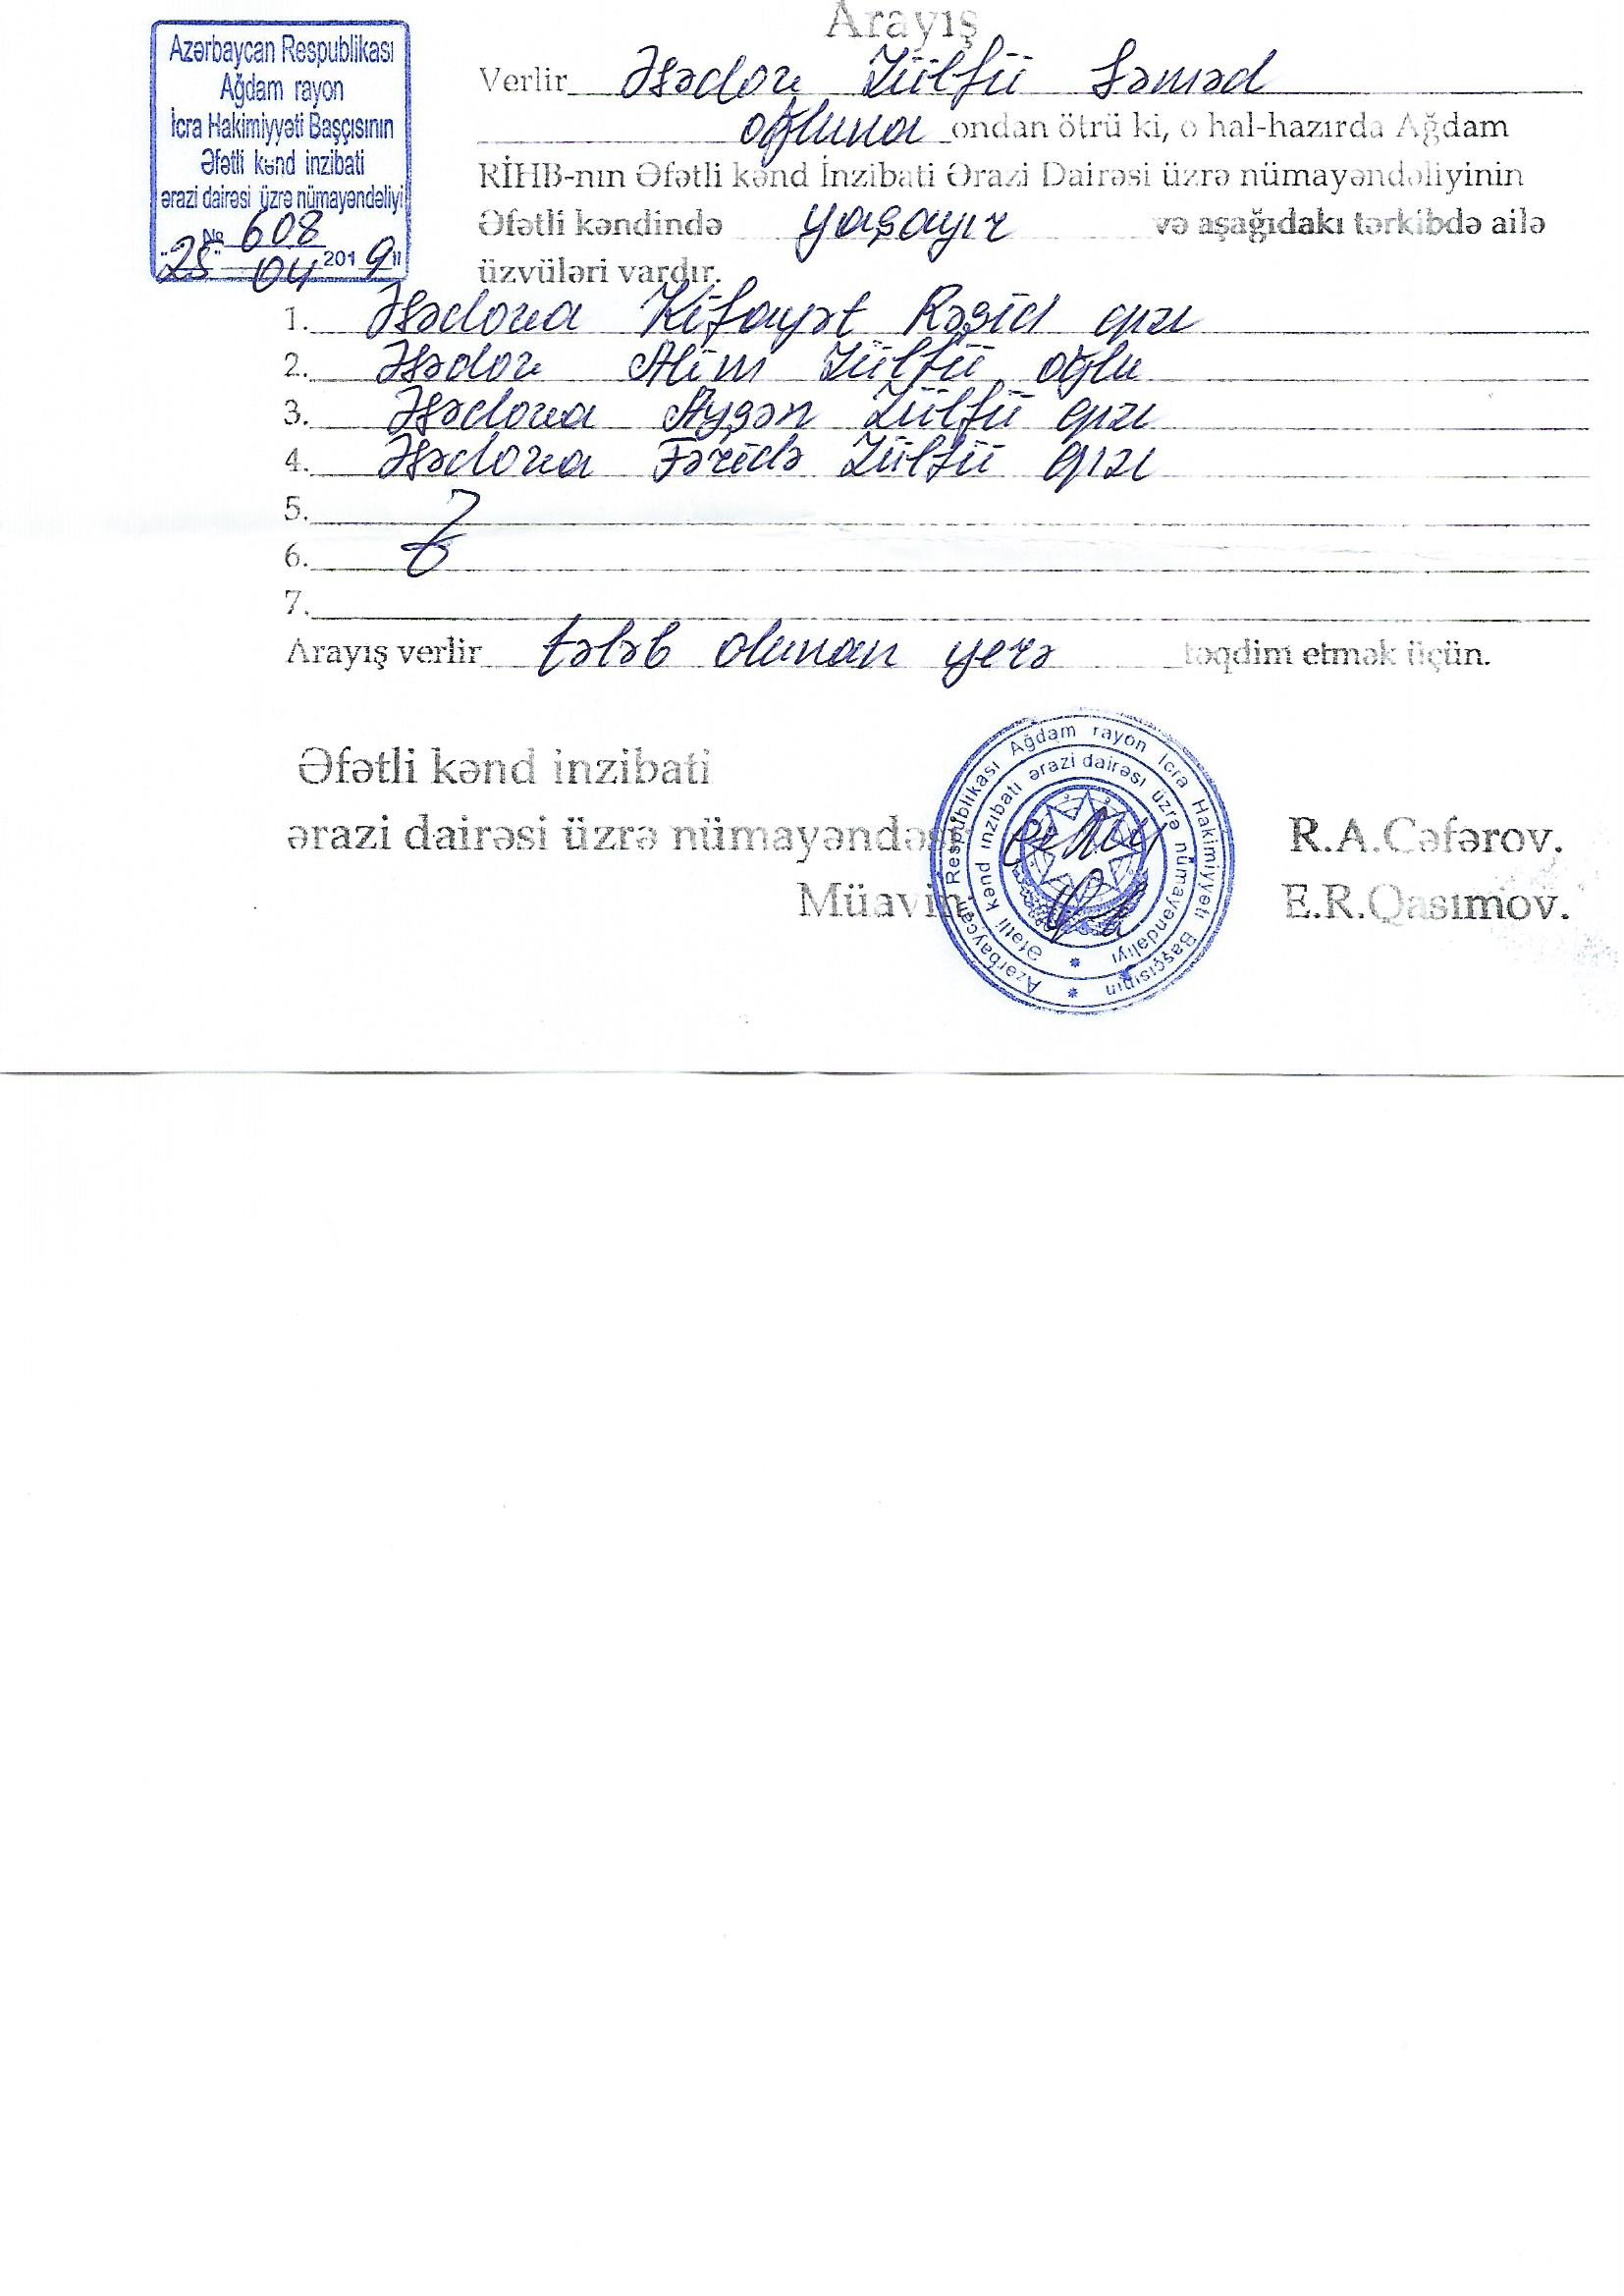 Arayış
Azərbaycan Respublikası
Ağdam rayon
İcra Hakimiyyəti Başçısının
Əfətli kənd inzibati
ərazi dairəsi üzrə nümayəndəliyi
№ 608
"25" 04 2019
Verlir Əsədov Zülfü Səməd
oğluna ondan ötrü ki, o hal-hazırda Ağdam
RİHB-nın Əfətli kənd İnzibati Ərazi Dairəsi üzrə nümayəndəliyinin
Əfətli kəndində yaşayır və aşağıdakı tərkibdə ailə
üzvüləri vardır.
1. Əsədova Kifayət Rəşid qızı
2. Əsədov Alim Zülfü oğlu
3. Əsədova Ayşən Zülfü qızı
4. Əsədova Fəridə Zülfü qızı
5.
6.
7.
Arayış verlir tələb olunan yerə təqdim etmək üçün.
Əfətli kənd inzibati
ərazi dairəsi üzrə nümayəndəsi R.A.Cəfərov.
Müavin: E.R.Qasımov.
Azərbaycan Respublikası Ağdam rayon İcra Hakimiyyəti Başçısının
Əfətli kənd inzibati ərazi dairəsi üzrə nümayəndəliyi